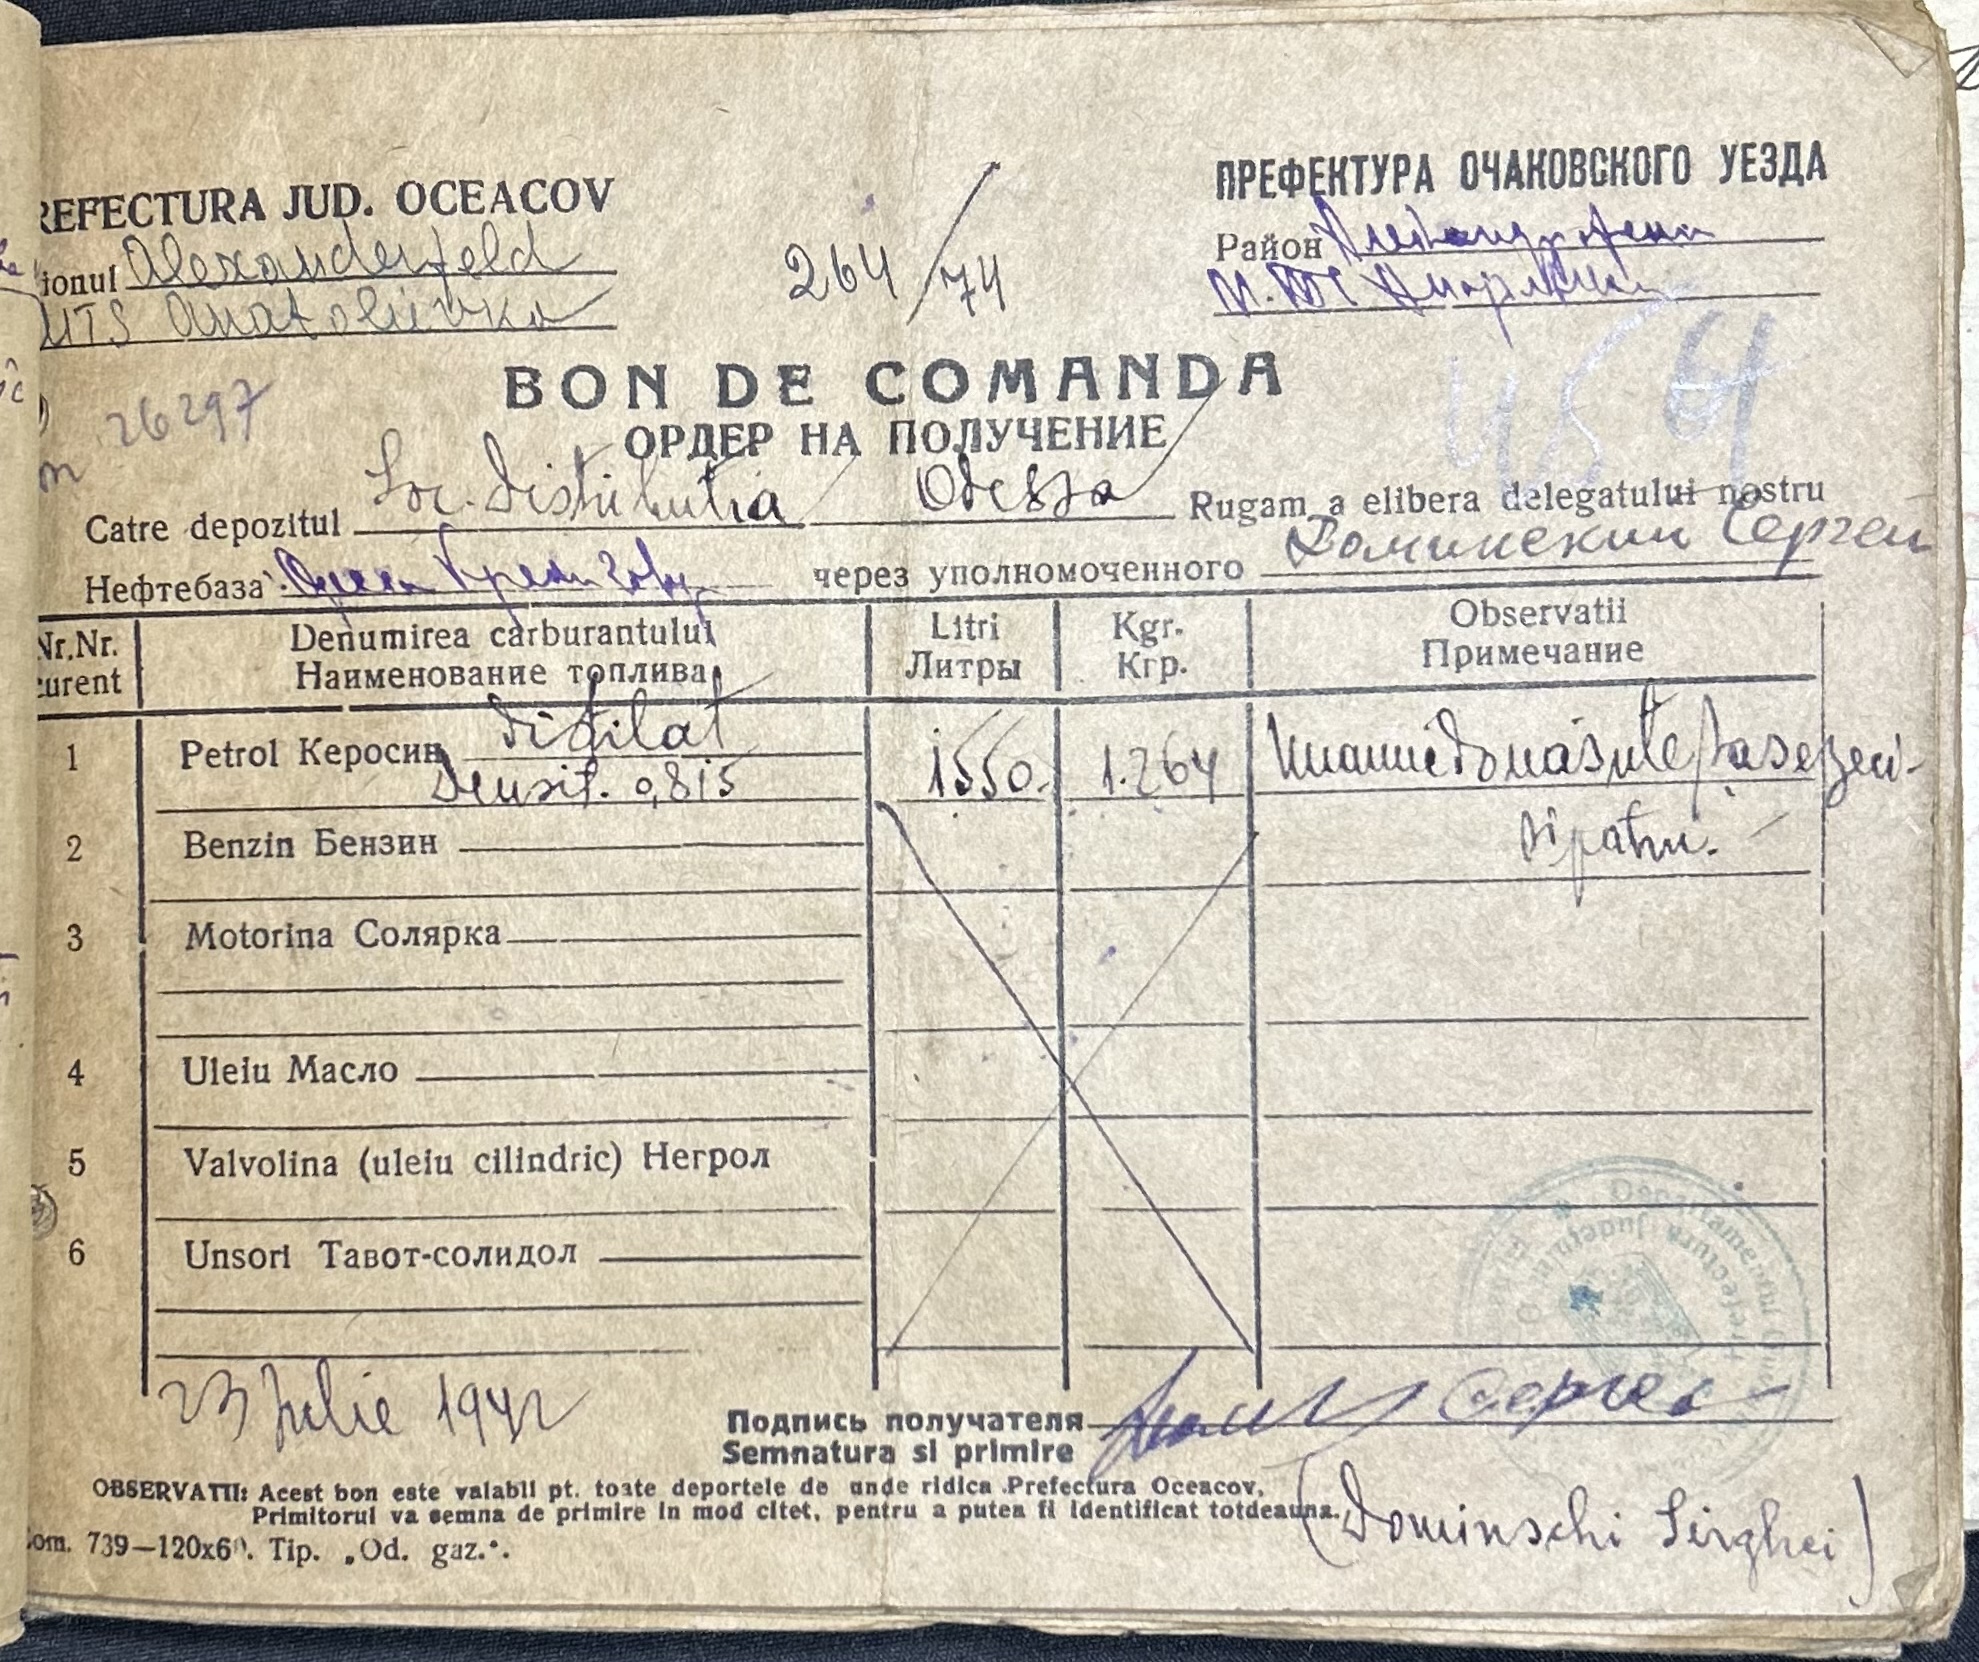 REFECTURA JUD. OCEACOV
ПРЕФЕКТУРА ОЧАКОВСКОГО УЕЗДА
ionul Alexanderfeld
264/74
Район
MTS Anatolievka
BON DE COMANDA
ОРДЕР НА ПОЛУЧЕНИЕ
26297
454
Catre depozitul Soc. Distributia Odessa Rugam a elibera delegatului nostru
Нефтебаза через уполномоченного Доминский Сергей
Nr.Nr. Denumirea carburantului Litri Kgr. Observatii
curent Наименование топлива Литры Кгр. Примечание
1 Petrol Керосин Distilat 1550. 1.264 Unamiedouăsutesasezeci-
Densit. 0,815 si patru.
2 Benzin Бензин
3 Motorina Солярка
4 Uleiu Масло
5 Valvolina (uleiu cilindric) Негрол
6 Unsori Тавот-солидол
23 Julie 1942
Подпись получателя Сергей
Semnatura si primire
OBSERVATII: Acest bon este valabil pt. toate deportele de unde ridica Prefectura Oceacov,
Primitorul va semna de primire in mod citet, pentru a putea fi identificat totdeauna.
(Dominschi Serghei)
Com. 739—120x60. Tip. „Od. gaz.".